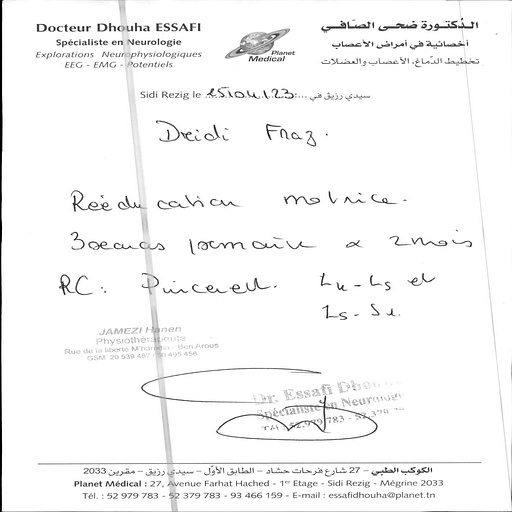 Docteur Dhouha ESSAFI
Spécialiste en Neurologie
Explorations Neurophysiologiques
EEG - EMG - Potentiels
Planet
Medical
الدكتورة ضحى الصّافي
أخصائية في أمراض الأعصاب
تخطيط الدّماغ، الأعصاب والعضلات
Sidi Rezig le 25.04.23 سيدي رزيق في
Dridi
Rééducation motrice.
3 séances / semaine x 2 mois
RC: L4-L5 et
L5-S1.
JAMEZI Hanen
Physiothérapeute
Rue de la liberté
GSM
Dr. Essafi
Spécialiste en Neurologie
Tél : 52 979 783 - 52 379
الكوكب الطبي – 27 شارع فرحات حشاد – الطابق الأوّل – سيدي رزيق – مقرين 2033
Planet Médical : 27, Avenue Farhat Hached - 1er Etage - Sidi Rezig - Mégrine 2033
Tél. : 52 979 783 - 52 379 783 - 93 466 159 - E-mail : essafidhouha@planet.tn